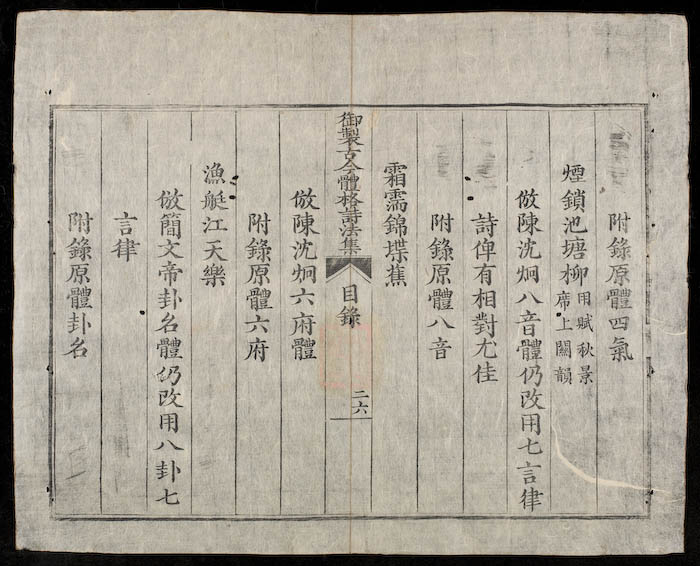 附錄原體四氣
煙鎖池塘柳用賦秋景
席上鬮韻
倣陳沈炯八音體仍改用七言律
詩俾有相對尤佳
附錄原體八音
霜濡錦堞蕉
御製古今體格詩法集
目錄
二六
倣陳沈炯六府體
附錄原體六府
漁艇江天樂
倣簡文帝卦名體仍改用八卦七
言律
附錄原體卦名